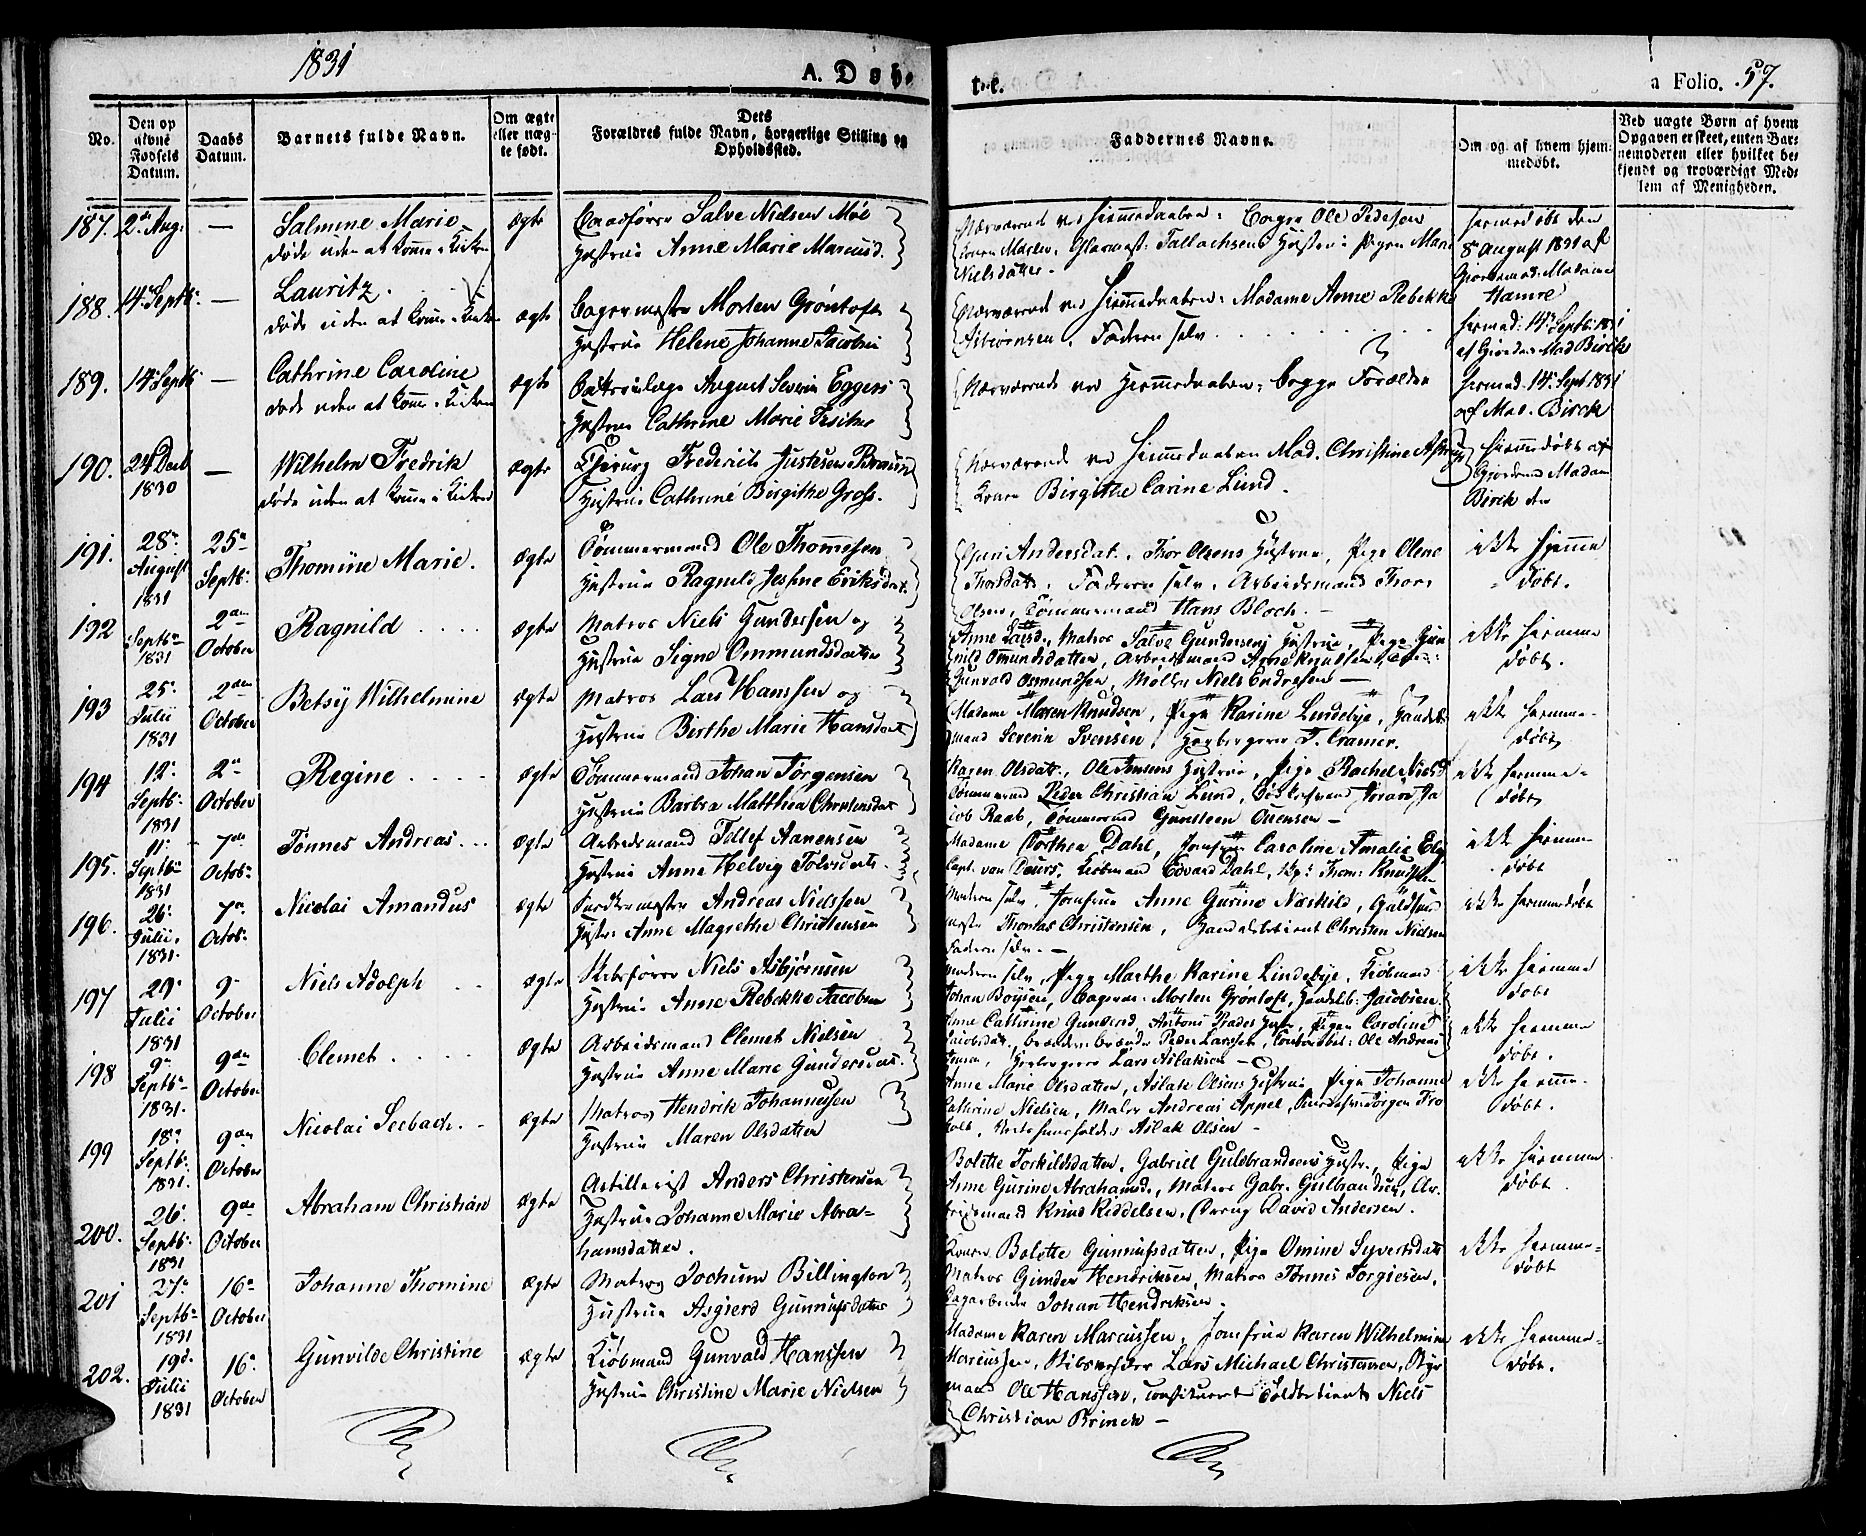 1831
A. Døb-
te.
a Folio. 57.
No.
Den op
givne
Fødsels
Datum.
Daabs
Datum.
Barnets fulde Navn.
Om ægte
eller uæg-
te født.
Dets
Forældres fulde Navn, borgerlige Stilling og
Opholdssted.
Faddernes Navne.
Om og af hvem hjem-
medøbt.
Ved uægte Børn af hvem
Opgaven er skeet, enten Bar-
nemoderen eller hvilket be-
kjendt og troværdigt Med-
lem af Menigheden.
187. 2den Aug. — Salmine Marie ægte Salve Nielsen Møl
døde uden at komme i Kirken Hustrue Anne Marie Marcusd.
Nærværende ved Hiemmedaaben: Ole Pedersen
Konen Maren, Glasmest. Tallachsens Hustrue, Pigen Mari
Nielsdatter.
hiemmedøbt den
8de August 1831 af
Giordemod: Madame
Hamre
188. 14de Septb: — Lauritz.
døde uden at komme i Kirken ægte Bagermester Morten Grøntoft
Hustrue Helene Johanne Jacobsen
Nærværende ved Hiemmedaaben: Madame Anne Rebekke
Asbiørnsen, Faderen selv
hiemmed: 14de Septb: 1831
af Giordem: Mad Birck
189. 14de Septb — Cathrine Caroline
døde uden at komme i Kirken ægte August Severin Eggers
Hustrue Cathrine Marie
Nærværende ved Hiemmedaaben: begge Forældre
hiemmed. 14de Sept 1831
af Mad. Birck
190. 24 Decb
1830 — Wilhelm Fredrik
døde uden at komme i Kirken ægte Chirurg Frederich Justesen Bruun
Hustrue Cathrine Birgithe Gross.
Nærværende ved Hiemmedaaben Mad. Christine
Konen Birgithe Carine Lund.
Hiemmedøbt af
Giordemod Madam
Birck den
191. 28de
August
1831 25de
Septb: Thomine Marie. ægte Tømmermand Ole Thommesen
Hustrue Ragnild Eriksdat.
Guri Andersdat., Thor Olsens Hustrue, Pige Olene
Thorsdatt, Faderen selv, Arbeidsmand Thor
Olsen, Tømmermand Hans Bloch. —
ikke hjemme
døbt.
192
Septbr
1831 2den
October Ragnild ægte Matros Niels Gundersen og
Hustrue Signe Ommundsdatter
Anne Larsd., Matros Salve Gundersens Hustrue, Pige Gun-
nild Omundsdatter, Arbeidsmand
Gunvald Osmundsen, Møller Niels Endresen —
ikke hiemme
døbt.
193 25de
Julii
1831 2den
October Betsÿ Wilhelmine ægte Matros Lars Hanssen og
Hustrue Berthe Marie Hansdat
Madame Maren Knudsen, Pige Karine Lindebye, Handels
mand Severin Svensen, Herbergerer T. Cramer.
ikke hiemme-
døbt
194 12te
Septb:
1831 2den
October Regine ægte Tømmermand Johan Jørgensen
Hustrue Barbra Matthea Christensdat
Karen Olsdatt., Ole Jensens Hustrue, Pige Rachel Nielsd
Tømmermand Peder Christian Lund, Ja
cob Raab, Tømmermand Gunsteen
ikke hiemme-
døbt
195. 11te
Septb:
1831 7de
Octob: Tønnes Andreas ægte Arbeidsmand Tellef Aanensen
Hustrue Anne Helvig
Madame Dorthea Dahl, Jomfrue Caroline Amalie
Capt. von Deurs, Kiøbmand Edvard Dahl, Thom: Knudsen
ikke hiemme
døbt
196. 26de
Julii,
1831. 7de
Octob: Nicolai Amandus ægte Andreas Nielssen
Hustr: Anne Magrethe Christensen
Moderen selv, Jomfrue Anne Gurine Næskild, Guldsmed
mester Thomas Christensen, Handelsbetient Christen Nielsen
Faderen selv. —
ikke hiemmedøbt
197 29de
Julii
1831 9de
October Niels Adolph ægte Skibsfører Niels Asbjørnsen
Hustrue Anne Rebekke Jacobsen
Moderen selv, Pige Marthe Karine Lindebye, Kiøbmand
Johan Boyesen, Bagerm: Morten Grøntoft, Handelsb: Jacobsen
ikke hiemme
døbt
198 9de
Septb:
1831. 9de
October Clemet ægte Arbeidsmand Clemet Nielsen
Hustrue Anne Marie Gundersdat.
Anne Cathrine Gundersd, Hustr, Pige Caroline
Jacobsdat, Peder Larssen, Ole Andreas
Herbergerer Lars Aslaksen
ikke hiemme
døbt.
199 18de
Septb:
1831. 9de
October Nicolai Seebach. ægte Matros Hendrik Johannesen
Hustrue Maren Olsdatter
Anne Marie Olsdatter, Aslak Olsens Hustrue, Pige Johanne
Cathrine Nielsen, Maler Andreas Appel,
Aslak Olsen —
ikke hiemme-
døbt.
200. 26de
Septb:
1831 9de
October Abraham Christian ægte Artillerist Anders Christensen
Hustrue Johanne Marie Abra-
hamsdatter.
Bolette Torkildsdatter, Gabriel Guldbrandsens Hustr., Pige
Anne Gurine Abrahamsd., Matros Gabr. Gulbrandsen, Ar-
beidsmand Knud Kiddelsen, David Andersen.
ikke hiemme
døbt.
201 27de
Septb:
1831 16de
October Johanne Thomine ægte Matros Jochum Billington
Hustrue Asgierd Gunnufsdatter
Konen Bolette Gunnufsdatter, Pige Omine Syvertsdatt
Matros Gunder Hendriksen, Matros Tønnes Torgiesen,
Johan Hendriksen.
ikke hiemme-
døbt
202. 19de
Julii
1831 16de
October Gunvilde Christine ægte Kiøbmand Gunvald Hanssen
Hustrue Christine Marie Nielsen
Madame Karen Marcussen, Jomfrue Karen Wilhelmine
Marcussen, Lars Michael Christensen,
mand Ole Hanssen, constitueret Toldbetient Niels
Christian Brinch —
ikke hiemme-
døbt.